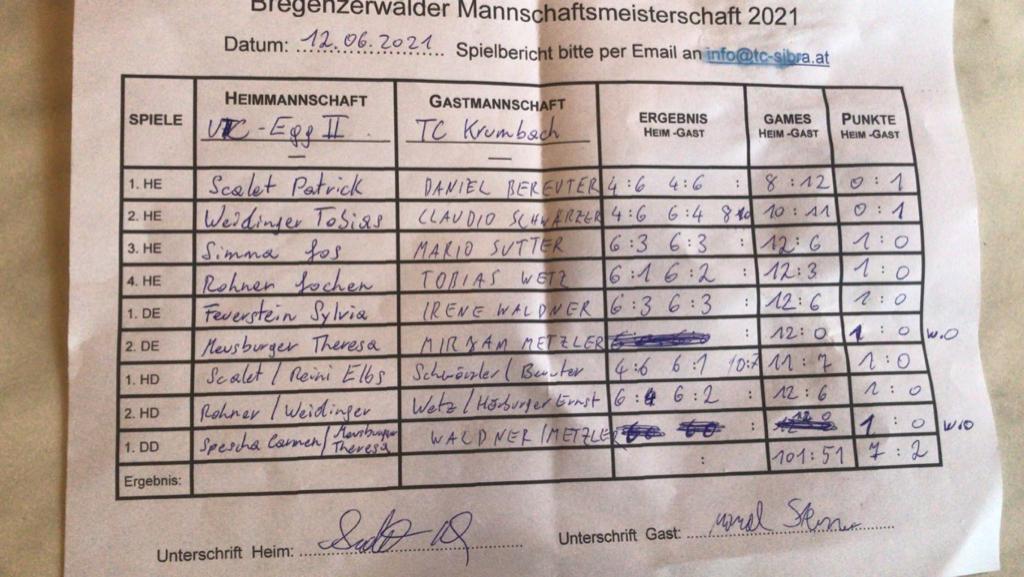 Bregenzerwälder Mannschaftsmeisterschaft 2021
Datum: 12.06.2021 Spielbericht bitte per Email an info@tc-sibra.at
SPIELE HEIMMANNSCHAFT GASTMANNSCHAFT ERGEBNIS GAMES PUNKTE
UTC-Egg II TC Krumbach HEIM -GAST HEIM -GAST HEIM -GAST
1. HE Scalet Patrick DANIEL BEREUTER 4:6 4:6 : 8:12 0:1
2. HE Weidinger Tobias CLAUDIO SCHWÄRZLER 4:6 6:4 10:11 0:1
3. HE Simma Jos MARIO SUTTER 6:3 6:3 : 12:6 1:0
4. HE Rohner Jochen TOBIAS WETZ 6:1 6:2 : 12:3 1:0
1. DE Feuerstein Sylvia IRENE WALDNER 6:3 6:3 : 12:6 1:0
2. DE Meusburger Theresa MIRJAM METZLER : 12:0 1:0 w.o
1. HD Scalet / Reini Elbs Schwärzler / Bereuter 4:6 6:1 10:7 11:7 1:0
2. HD Rohner / Weidinger Wetz / Hörburger Ernst 6:4 6:2 : 12:6 1:0
1. DD Spescha Carmen / Meusburger Theresa WALDNER / METZLER : 1:0 w.o
Ergebnis: : 101:51 7:2
Unterschrift Heim: Unterschrift Gast: